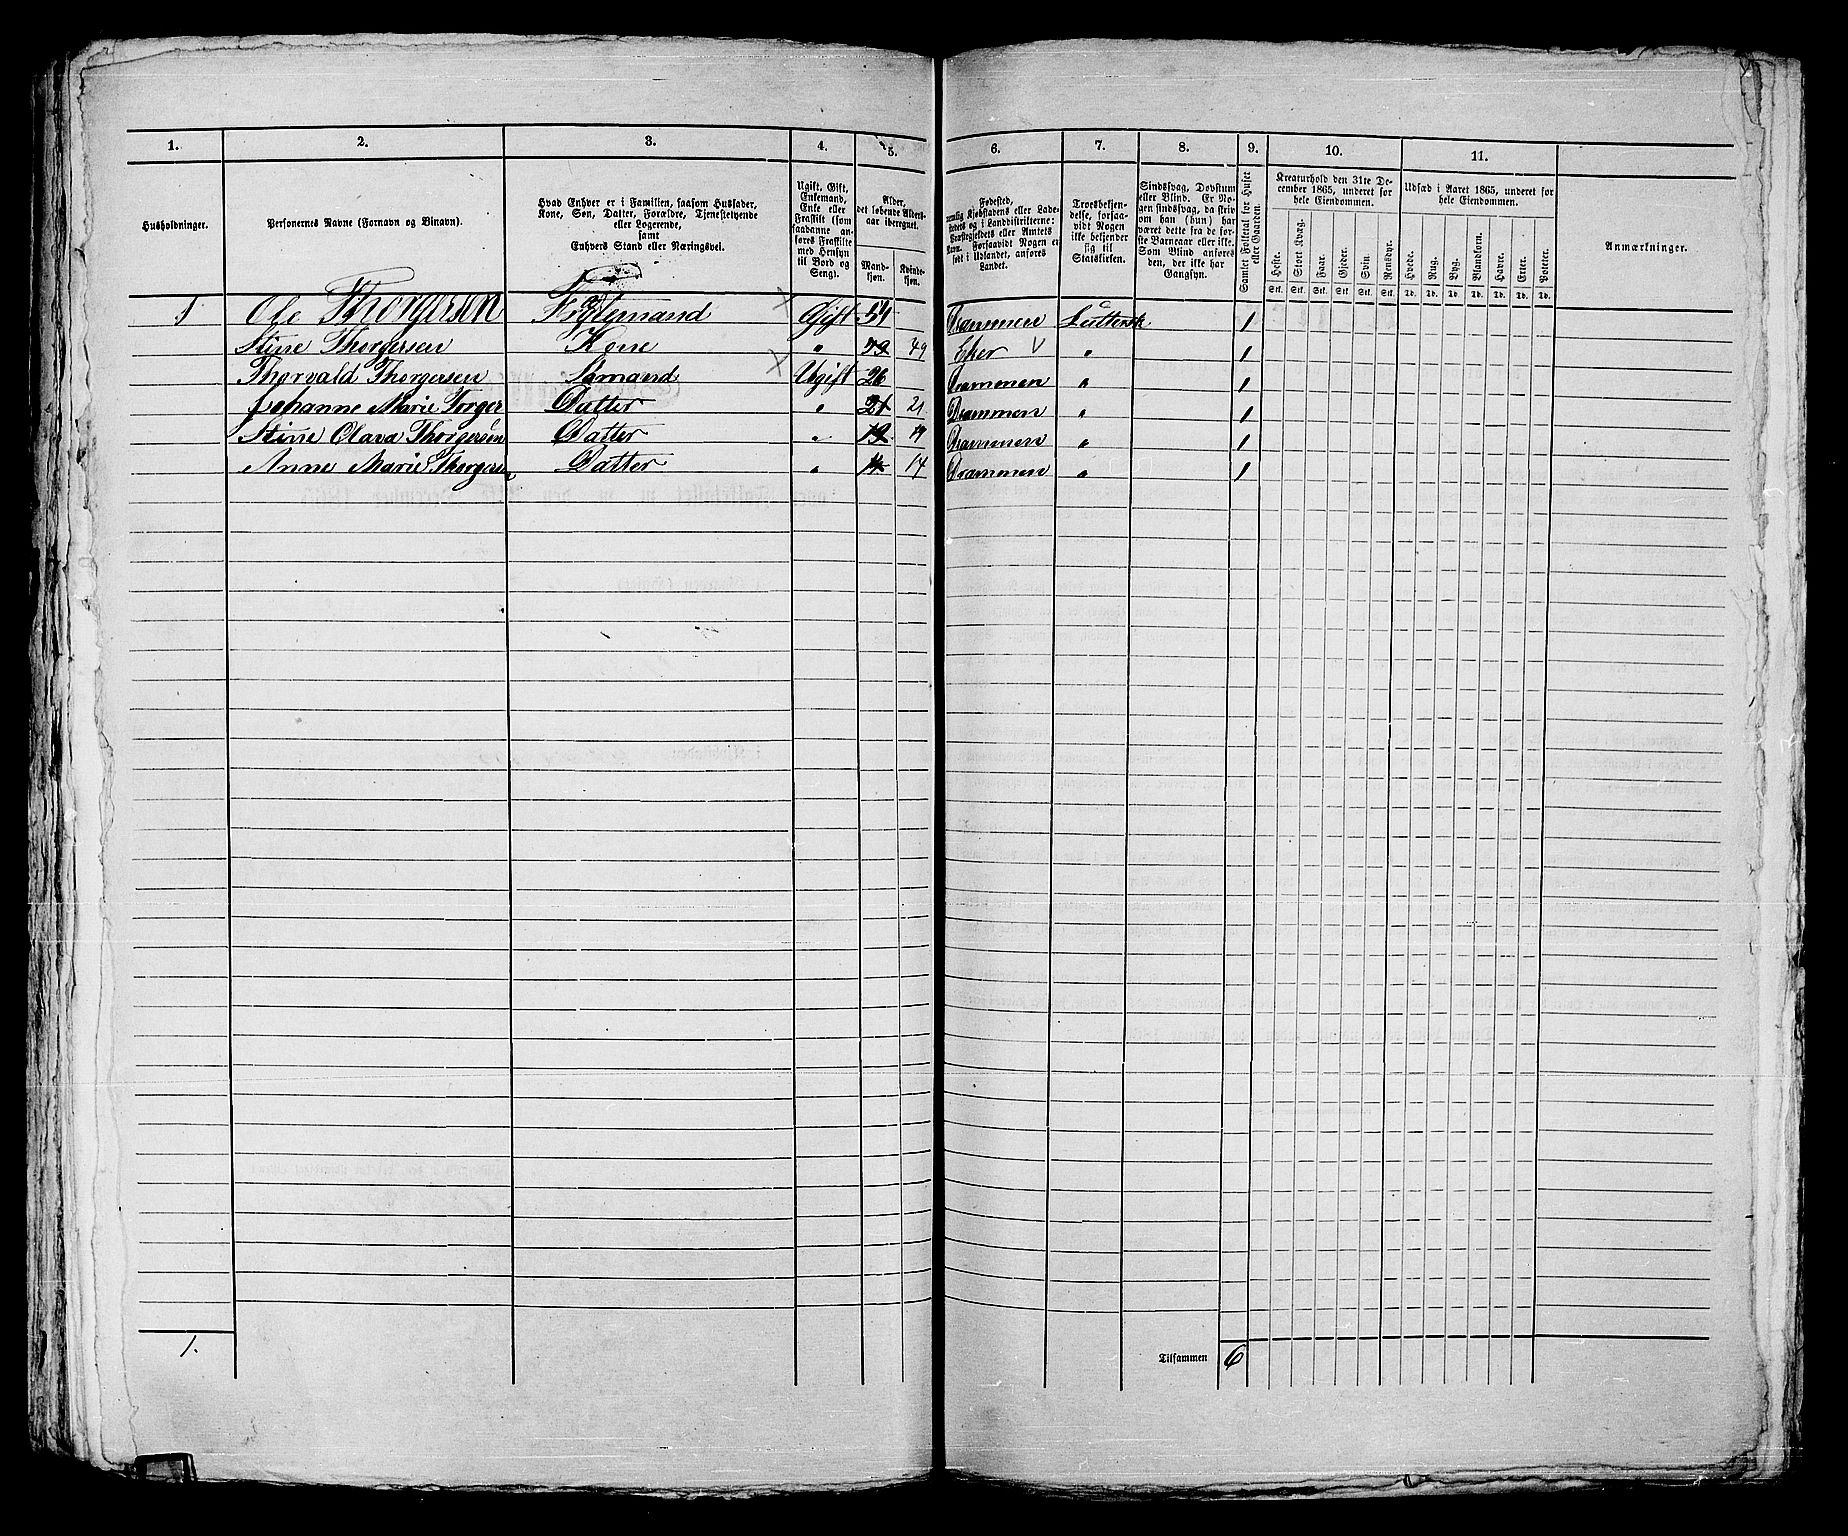 1. 2. 3. 4. 5. 6. 7. 8. 9. 10. 11.
Husholdninger.
Personernes Navne (Fornavn og Binavn).
Hvad Enhver er i Familien, saasom Husfader,
Kone, Søn, Datter, Forældre, Tjenestetyende
eller Logerende,
samt
Enhvers Stand eller Næringsvei.
Ugift, Gift,
Enkemand,
Enke eller
Fraskilt (som
saadanne an-
føres Fraskilte
med Hensyn
til Bord og
Seng).
Alder,
det løbende Alders-
aar iberegnet.
Mand-
kjøn.
Kvinde-
kjøn.
Fødested,
nemlig Kjøbstadens eller Lade-
stedets og i Landdistrikterne:
Præstegjeldets eller Amtets
Navn.
Forsaavidt Nogen er
født i Udlandet, anføres
Landet.
Troesbekjen-
delse, forsaa-
vidt Nogen
ikke bekjender
sig til
Statskirken.
Sindssvag, Døvstum
eller Blind. Er No-
gen sindssvag, da skriv
om han (hun) har
været dette fra de før-
ste Barneaar eller ikke.
Som Blind anføres
den, der ikke har
Gangsyn.
Samlet Folketal for Huset
eller Gaarden.
Kreaturhold den 31te De-
cember 1865, underet for
hele Eiendommen.
Heste. Stort Kvæg. Faar. Gjeder. Svin. Rensdyr.
Stk. Stk. Stk. Stk. Stk. Stk.
Udsæd i Aaret 1865, underet for
hele Eiendommen.
Hvede. Rug. Byg. Blandkorn. Havre. Erter. Poteter.
Td. Td. Td. Td. Td. Td. Td.
Anmærkninger.
1 Ole Thorgersen Gift 54 Drammen Luthersk 1
Stine Thorgersen Kone " 49 Eker " 1
Thorvald Thorgersen Sømand Ugift 26 Drammen " 1
Johanne Marie Torger Datter " 21 21 Drammen " 1
Stine Olava Thorgersen Datter " 19 19 Drammen " 1
Anne Marie Thorgersen Datter " 14 Drammen " 1
1.
Tilsammen 6